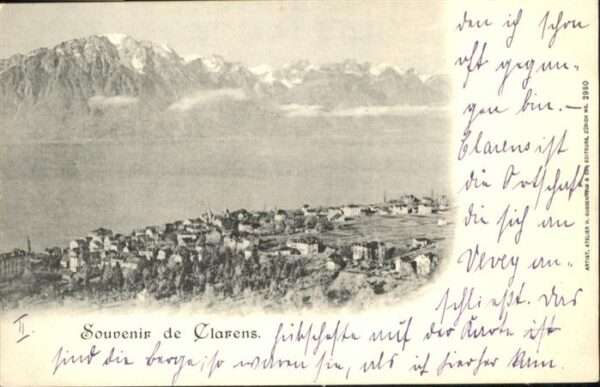 den ich schon
oft gegan-
gen bin. —
Clarens ist
die Ortschaft
die sich an
Vevey an-
schließt. Das
II.
Souvenir de Clarens.
hübscheste auf der Karte ist
sind die Berge; so waren sie, als ich hierher kam.
ARTIST. ATELIER H. GUGGENHEIM & EDITEURS, ZÜRICH No. 2990